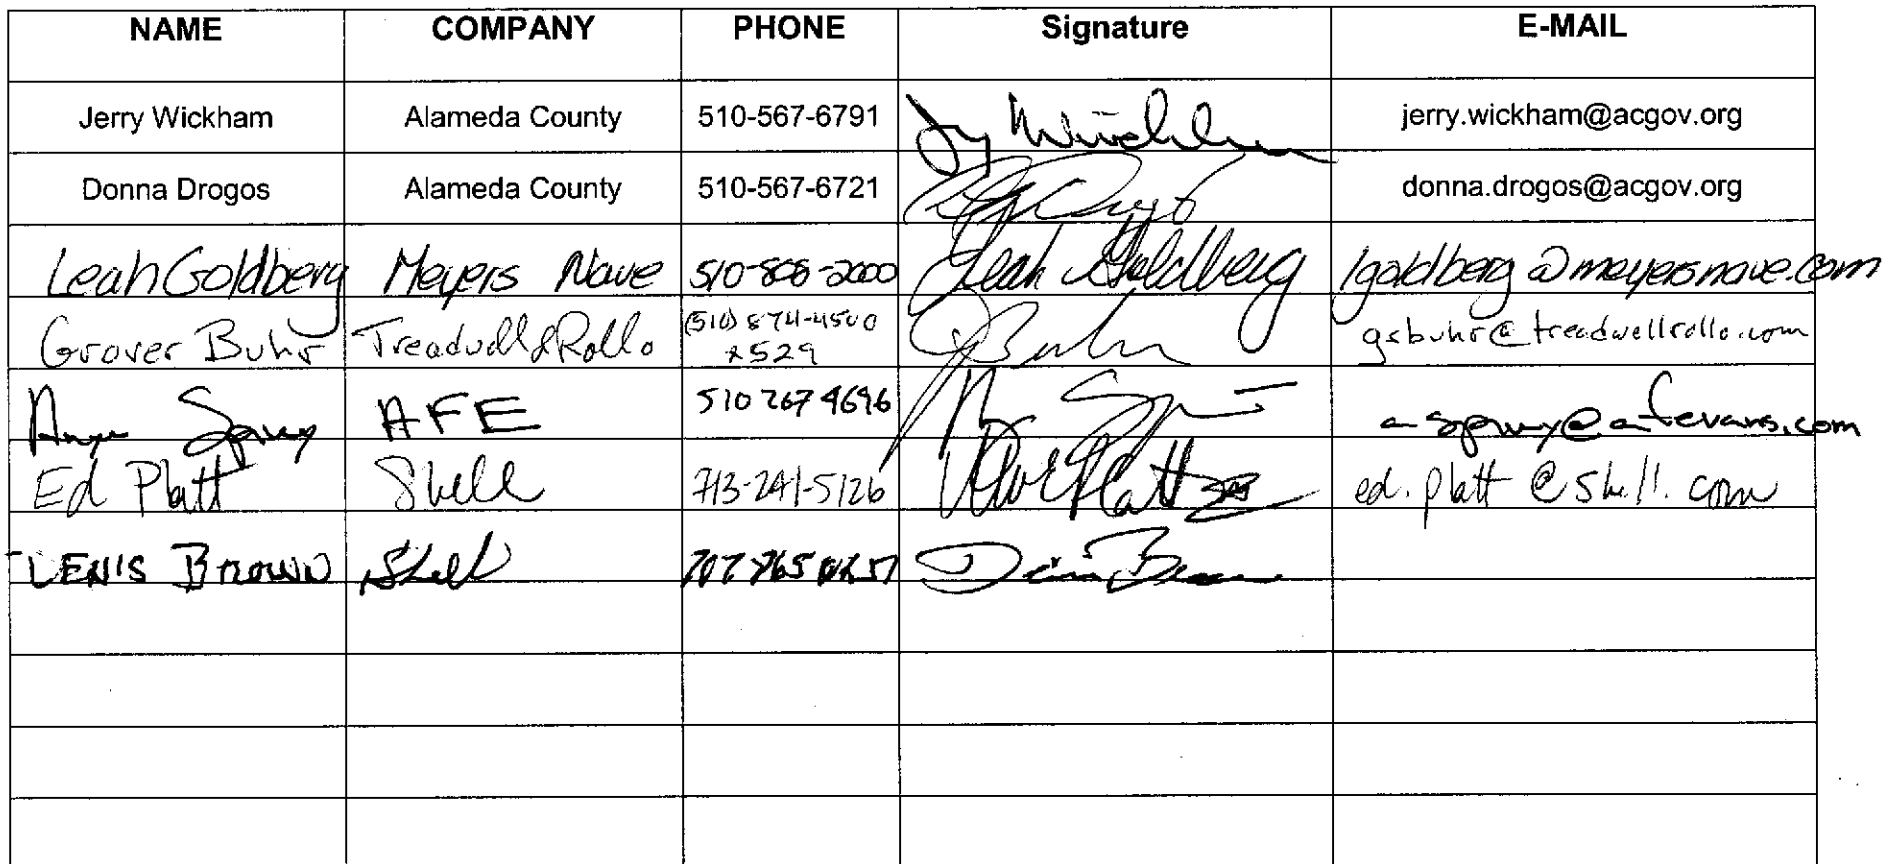 NAME COMPANY PHONE Signature E-MAIL
Jerry Wickham Alameda County 510-567-6791 jerry.wickham@acgov.org
Donna Drogos Alameda County 510-567-6721 donna.drogos@acgov.org
Leah Goldberg Meyers Nave 510-808-2000 Leah Goldberg lgoldberg@meyersnave.com
Grover Buhr Treadwell & Rollo (510) 874-4500 x529 GBuhr gsbuhr@treadwellrollo.com
AFE 510 267 4696
Ed Platt Shell 713-241-5126 Platt ed.platt@shell.com
DENIS BROWN Shell 707 865 0251 Denis Brown